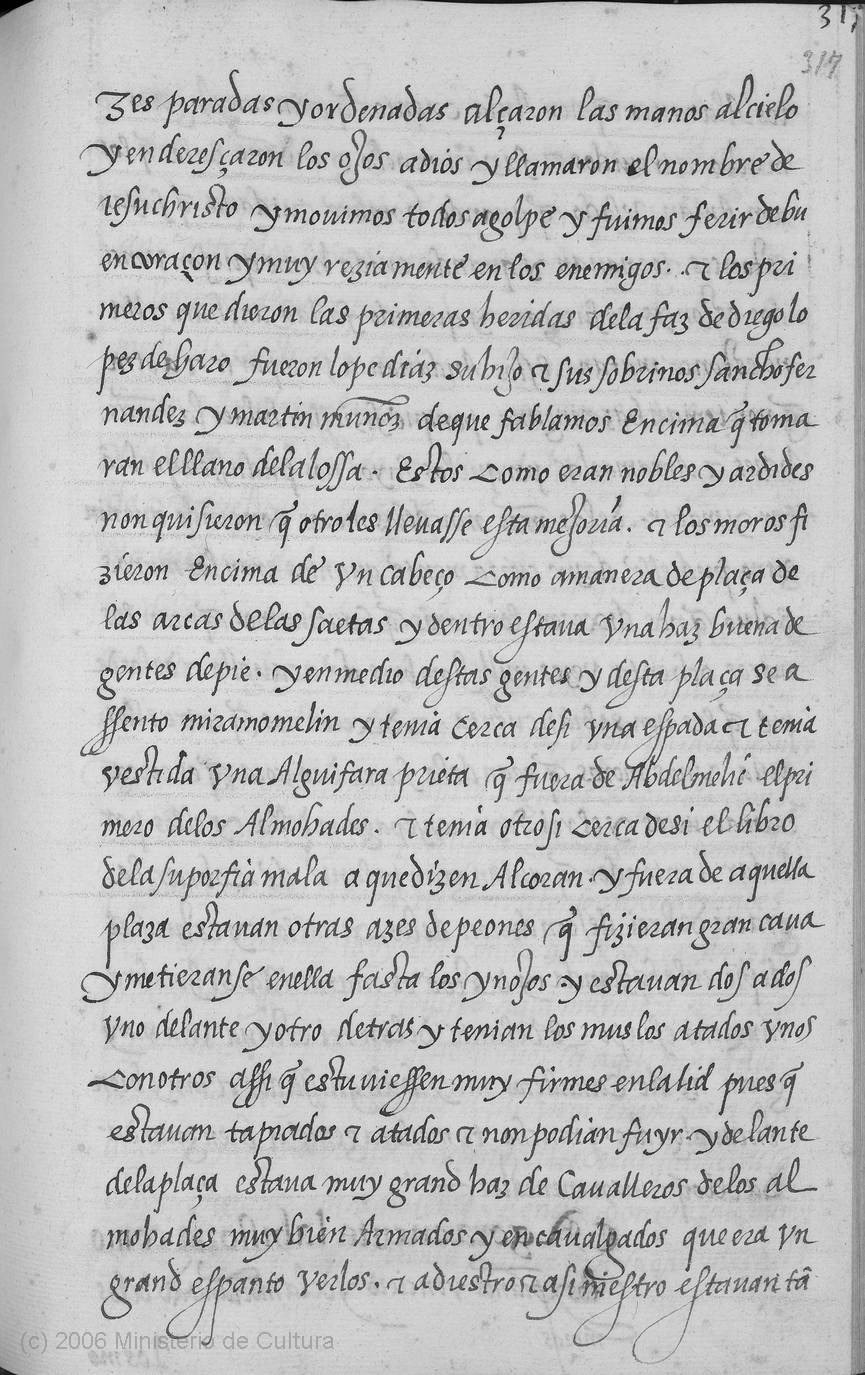 317
317
zes paradas y ordenadas alçaron las manos al cielo
y enderesçaron los ojos a dios y llamaron el nombre de
iesuchristo y mouimos todos a golpe y fuimos ferir de bu
en coraçon y muy reziamente en los enemigos. & los pri
meros que dieron las primeras heridas de la faz de diego lo
pez de haro fueron lope diaz su hijo & sus sobrinos sancho fer
nandez y martin munoz de que fablamos Encima q̃ toma
ran el llano de la lossa. Estos Como eran nobles y ardides
non quisieron q̃ otro les lleuasse esta mejoria. & los moros fi
zieron Encima de Vn cabeço Como a manera de plaça de
las arcas de las saetas y dentro estaua Vna haz buena de
gentes de pie. y en medio destas gentes y desta plaça se a
ssento miramomelin y tenia Cerca de si Vna espada & tenia
vestida Vna Alguifara prieta q̃ fuera de Abdelmehé el pri
mero de los Almohades. & tenia otrosi Cerca de si el libro
de la suporfia mala a que dizen Alcoran. y fuera de aquella
plaza estauan otras azes de peones q̃ fizieran gran caua
y metieranse en ella fasta los ynojos. y estauan dos a dos
Vno delante y otro detras y tenian los muslos atados Vnos
Con otros assi q̃ estuuiessen muy firmes en la lid pues q̃
estauan tapiados & atados & non podian fuyr. y delante
de la plaça estaua muy grand haz de Caualleros de los al
mohades muy bien Armados y encaualgados que era Vn
grand espanto Verlos. & a diestro & a siniestro estauan tã
(c) 2006 Ministerio de Cultura